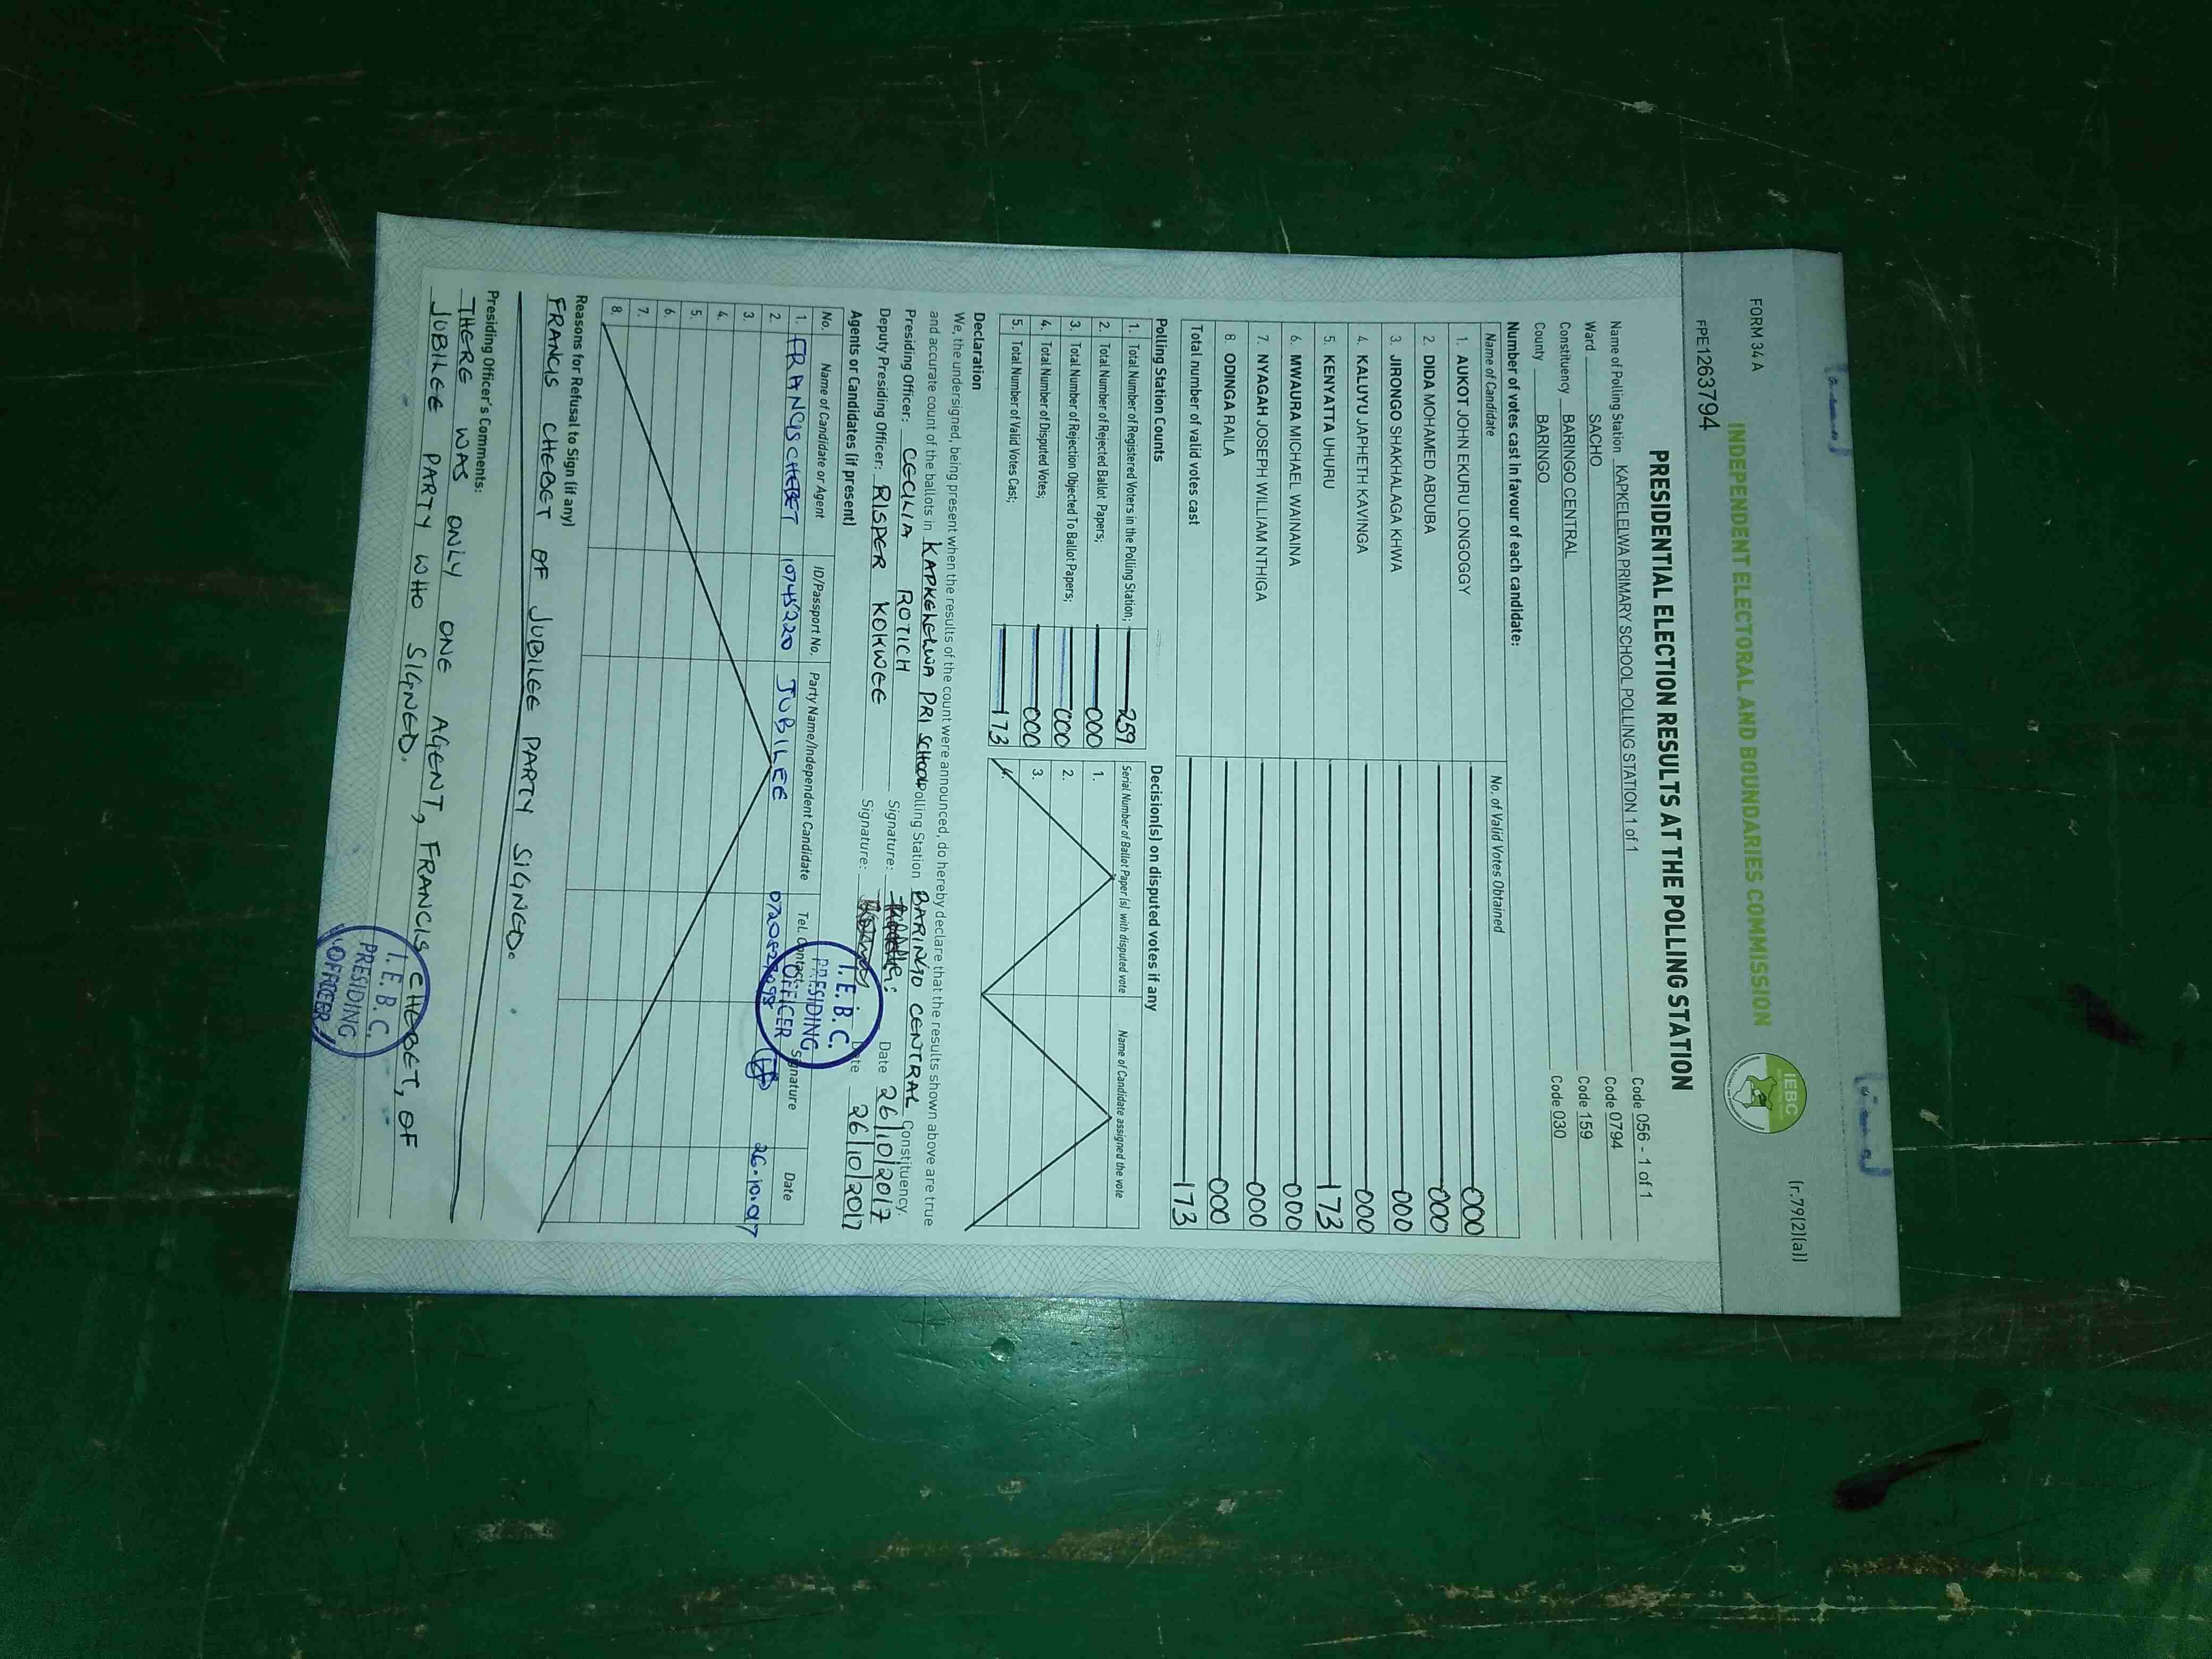 FORM 34 A
(r.79(2)(a))
INDEPENDENT ELECTORAL AND BOUNDARIES COMMISSION
IEBC
FPE1263794
PRESIDENTIAL ELECTION RESULTS AT THE POLLING STATION
Name of Polling Station KAPKELELWA PRIMARY SCHOOL POLLING STATION 1 of 1 Code 056 - 1 of 1
Ward SACHO Code 0794
Constituency BARINGO CENTRAL Code 159
County BARINGO Code 030
Number of votes cast in favour of each candidate:
Name of Candidate No. of Valid Votes Obtained
1. AUKOT JOHN EKURU LONGOGGY 000
2. DIDA MOHAMED ABDUBA 000
3. JIRONGO SHAKHALAGA KHWA 000
4. KALUYU JAPHETH KAVINGA 000
5. KENYATTA UHURU 173
6. MWAURA MICHAEL WAINAINA 000
7. NYAGAH JOSEPH WILLIAM NTHIGA 000
8. ODINGA RAILA 000
Total number of valid votes cast 173
Polling Station Counts
1. Total Number of Registered Voters in the Polling Station; 259
2. Total Number of Rejected Ballot Papers; 000
3. Total Number of Rejection Objected To Ballot Papers; 000
4. Total Number of Disputed Votes; 000
5. Total Number of Valid Votes Cast; 173
Decision(s) on disputed votes if any
Serial Number of Ballot Paper (s) with disputed vote Name of Candidate assigned the vote
1.
2.
3.
4.
Declaration
We, the undersigned, being present when the results of the count were announced, do hereby declare that the results shown above are true
and accurate count of the ballots in KAPKELELWA PRI SCHOOL Polling Station BARINGO CENTRAL Constituency.
Presiding Officer: CECILIA ROTICH Signature: Date 26/10/2017
Deputy Presiding Officer: RISPER KOKWEE Signature: Date 26/10/2017
Agents or Candidates (if present)
No. Name of Candidate or Agent ID/Passport No. Party Name/Independent Candidate Tel. Contact Signature Date
1. FRANCIS CHEBET 10745220 JUBILEE 26.10.017
2.
3.
4.
5.
6.
7.
8.
I.E.B.C.
PRESIDING
OFFICER
Reasons for Refusal to Sign (if any)
FRANCIS CHEBET OF JUBILEE PARTY SIGNED.
Presiding Officer's Comments:
THERE WAS ONLY ONE AGENT, FRANCIS CHEBET, OF
JUBILEE PARTY WHO SIGNED.
I.E.B.C.
PRESIDING
OFFICER